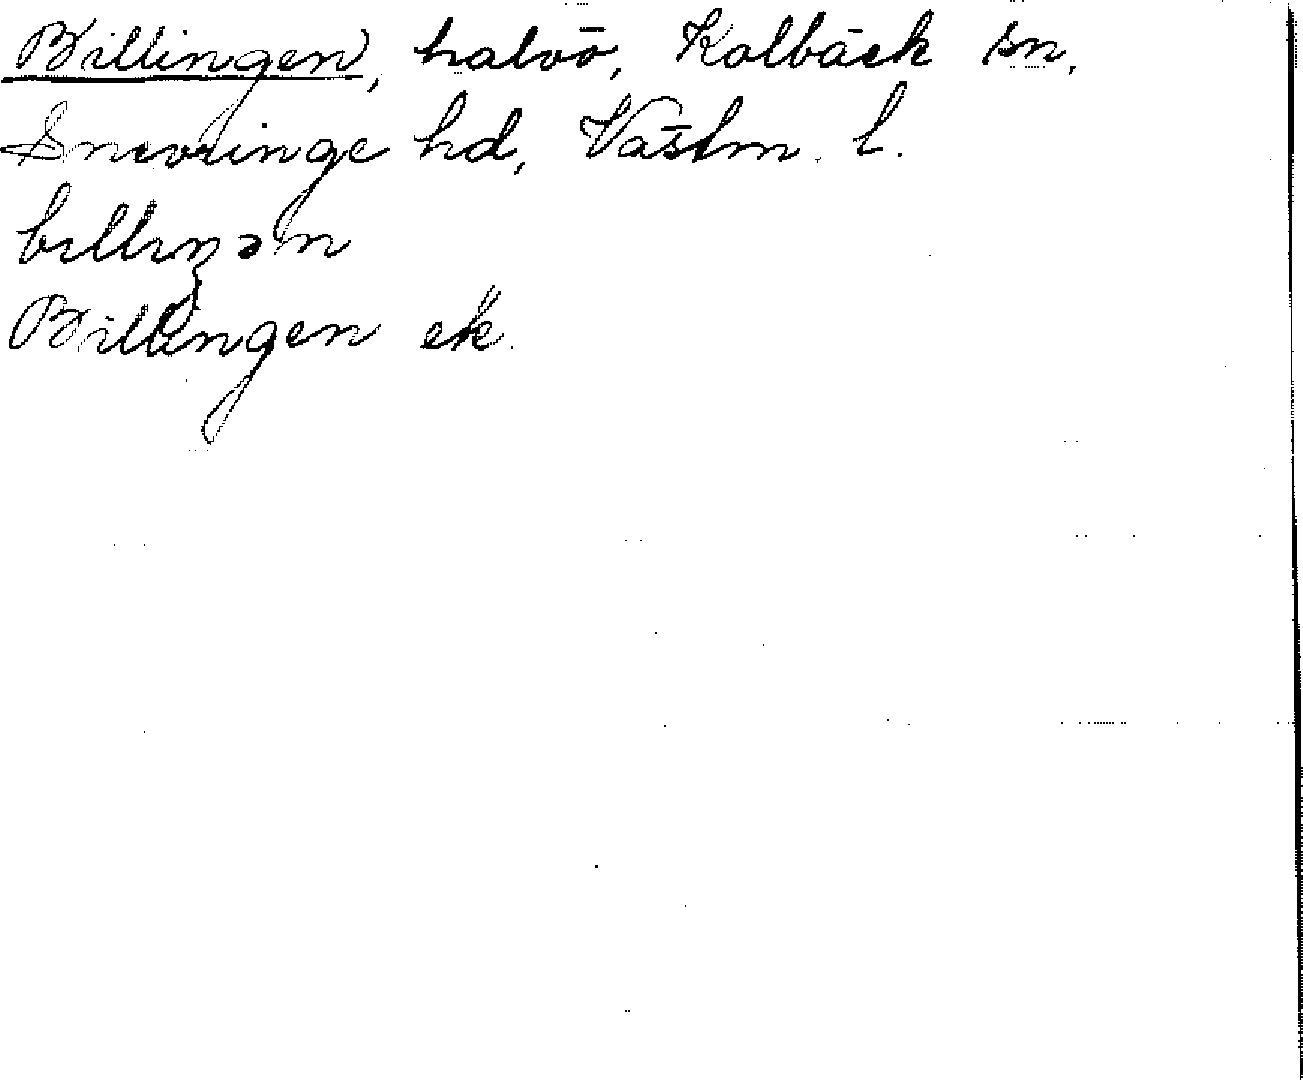 Billingen, halvö, Kolbäck sn,
Snevringe hd, Västm. l.
billiŋən
Billingen ek.